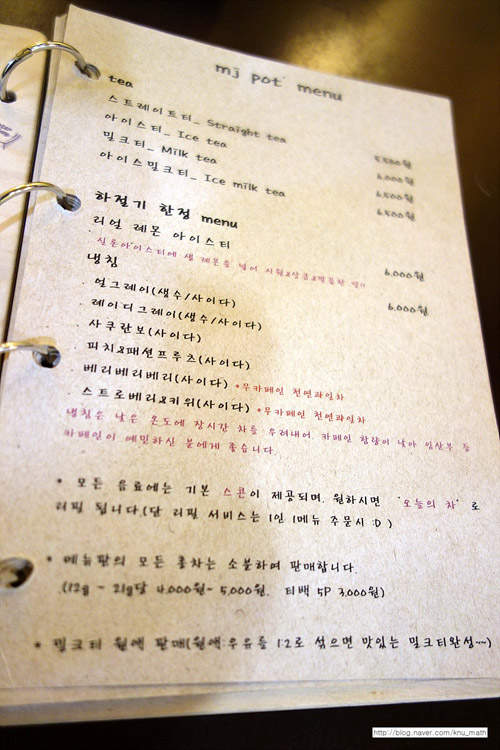 mj pot' menu
tea
스트레이트티_ Straight tea 5,500원
아이스티_ Ice tea 6,000원
밀크티_ Milk tea 6,500원
아이스밀크티_ Ice milk tea 6,500원
하절기 한정 menu
리얼 레몬 아이스티 6,000원
실론아이스티에 생 레몬을 넣어 시원&상큼&깔끔한
냉침 6,000원
. 얼그레이(생수/사이다)
. 레이디그레이(생수/사이다)
. 사쿠란보(사이다)
. 피치&패션프루츠(사이다)
. 베리베리베리(사이다) *무카페인 천연과일차
. 스트로베리&키위(사이다) *무카페인 천연과일차
냉침은 낮은 온도에 장시간 차를 우려내어, 카페인 함량이 낮아 임산부 등
카페인이 예민하신 분에게 좋습니다.
* 모든 음료에는 기본 스콘이 제공되며, 원하시면 '오늘의 차' 로
리필 됩니다.(단 리필 서비스는 1인 1메뉴 주문시 :D )
* 메뉴판의 모든 홍차는 소분하여 판매합니다.
(12g - 21g당 4,000원- 5,000원, 티백 5P 3,000원)
* 밀크티 원액 판매(원액:우유를 1:2로 섞으면 맛있는 밀크티완성~~)
http://blog.naver.com/knu_math